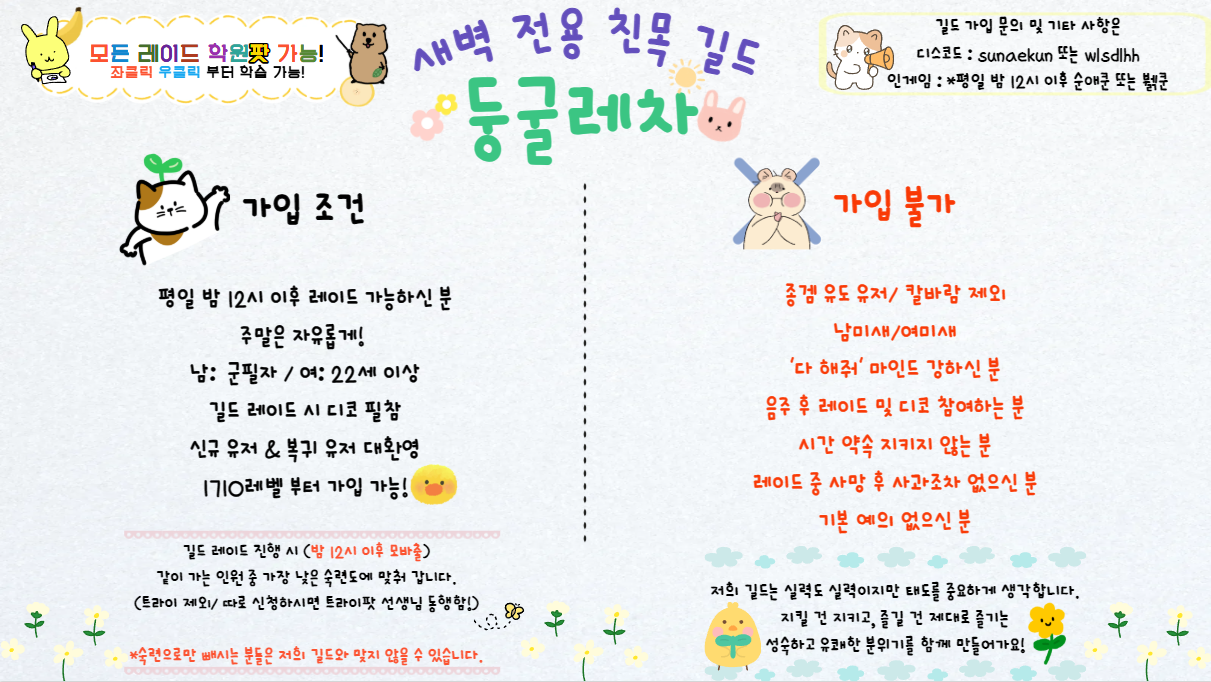 모든 레이드 학원팟 가능!
좌클릭 우클릭 부터 학습 가능!
새벽 전용 친목 길드
둥굴레차
길드 가입 문의 및 기타 사항은
디스코드 : sunaekun 또는 wlsdlhh
인게임 : *평일 밤 12시 이후 순애쿤 또는 뷁쿤
가입 조건
평일 밤 12시 이후 레이드 가능하신 분
주말은 자유롭게!
남: 군필자 / 여: 22세 이상
길드 레이드 시 디코 필참
신규 유저 & 복귀 유저 대환영
1710레벨 부터 가입 가능!
길드 레이드 진행 시 (밤 12시 이후 모바출)
같이 가는 인원 중 가장 낮은 숙련도에 맞춰 갑니다.
(트라이 제외/ 따로 신청하시면 트라이팟 선생님 동행함!)
*숙련으로만 빼시는 분들은 저희 길드와 맞지 않을 수 있습니다.
가입 불가
종겜 유도 유저/ 칼바람 제외
남미새/여미새
'다 해줘' 마인드 강하신 분
음주 후 레이드 및 디코 참여하는 분
시간 약속 지키지 않는 분
레이드 중 사망 후 사과조차 없으신 분
기본 예의 없으신 분
저희 길드는 실력도 실력이지만 태도를 중요하게 생각합니다.
지킬 건 지키고, 즐길 건 제대로 즐기는
성숙하고 유쾌한 분위기를 함께 만들어가요!